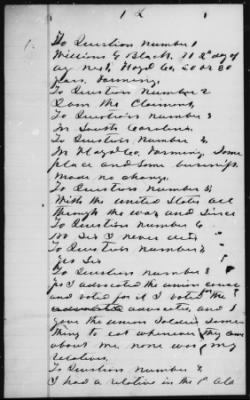 1.
To Question Number 1
Williams G Black, 71
of age next, Floyd Co, 20 or 30
years, Farming.
To Question Number 2
I am the Claimant,
To Question Number 3
In South Carolina.
To Question Number 4
In Floyd Co, Farming. Same
place and Same business
Made no change.
To Question Number 5,
With the united States all
through the war and Since
To Question Number 6
No Sir I never did,
To Question Number 7
Yes Sir
To Question Number 8
Yes I advocated the union cause
and voted for it I voted for the
advocates, and I
gave the union Soldiers Some
thing to eat whenever they came
about me, none was my
relatives,
To Question Number 9
I had a relative in the 1st Ala